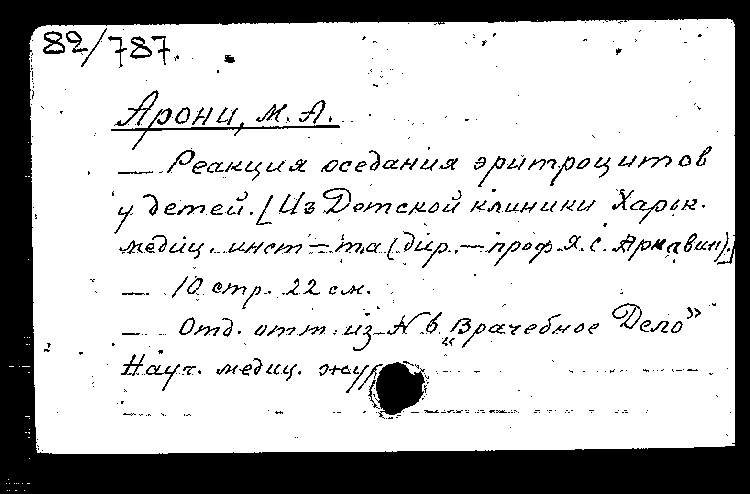 82/787.
Арони, М. А.
— Реакция оседания эритроцитов
у детей. [Из Детской клиники Харьк.
медиц. инст-та (дир. — проф. Я. С. Аркавин).]
— 10 стр. 22 см.
— Отд. отт. из N 6 „Врачебное Дело”
Науч. медиц. жур